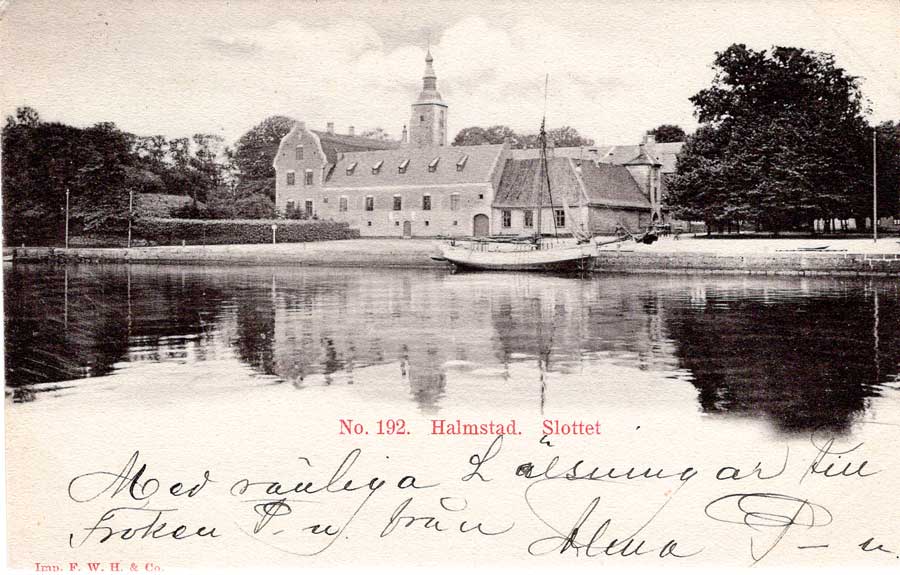 No. 192. Halmstad. Slottet
Med vänliga Hälsningar till
Fröken P-n från Alma P-n
Imp. F. W. H. & Co.